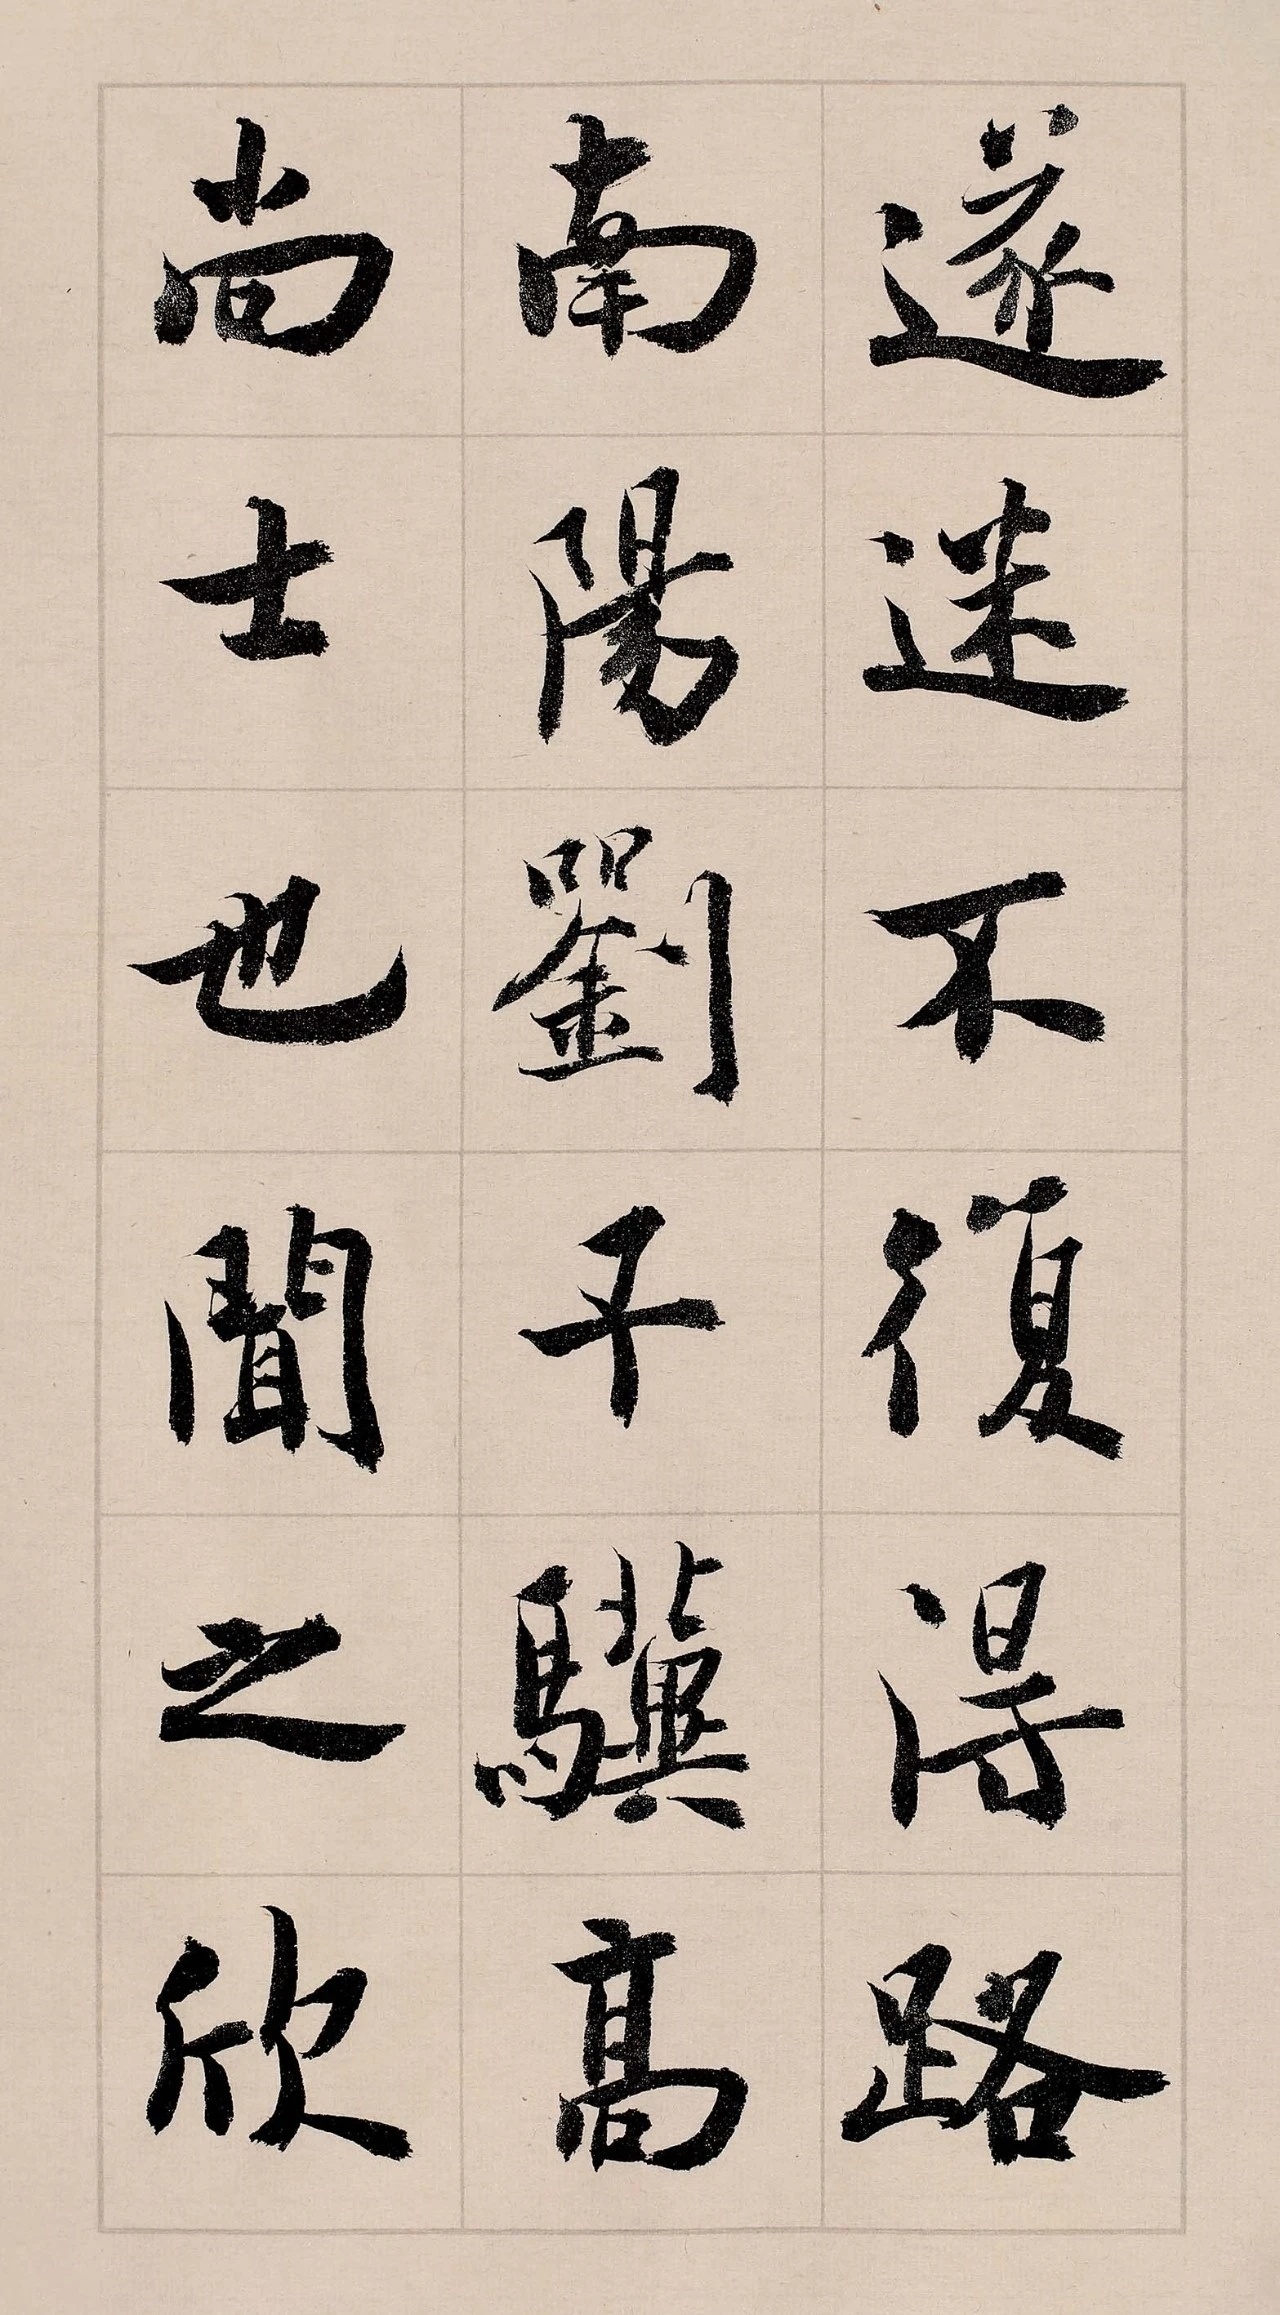 遂迷不復得路
南陽劉子驥高
尚士也聞之欣